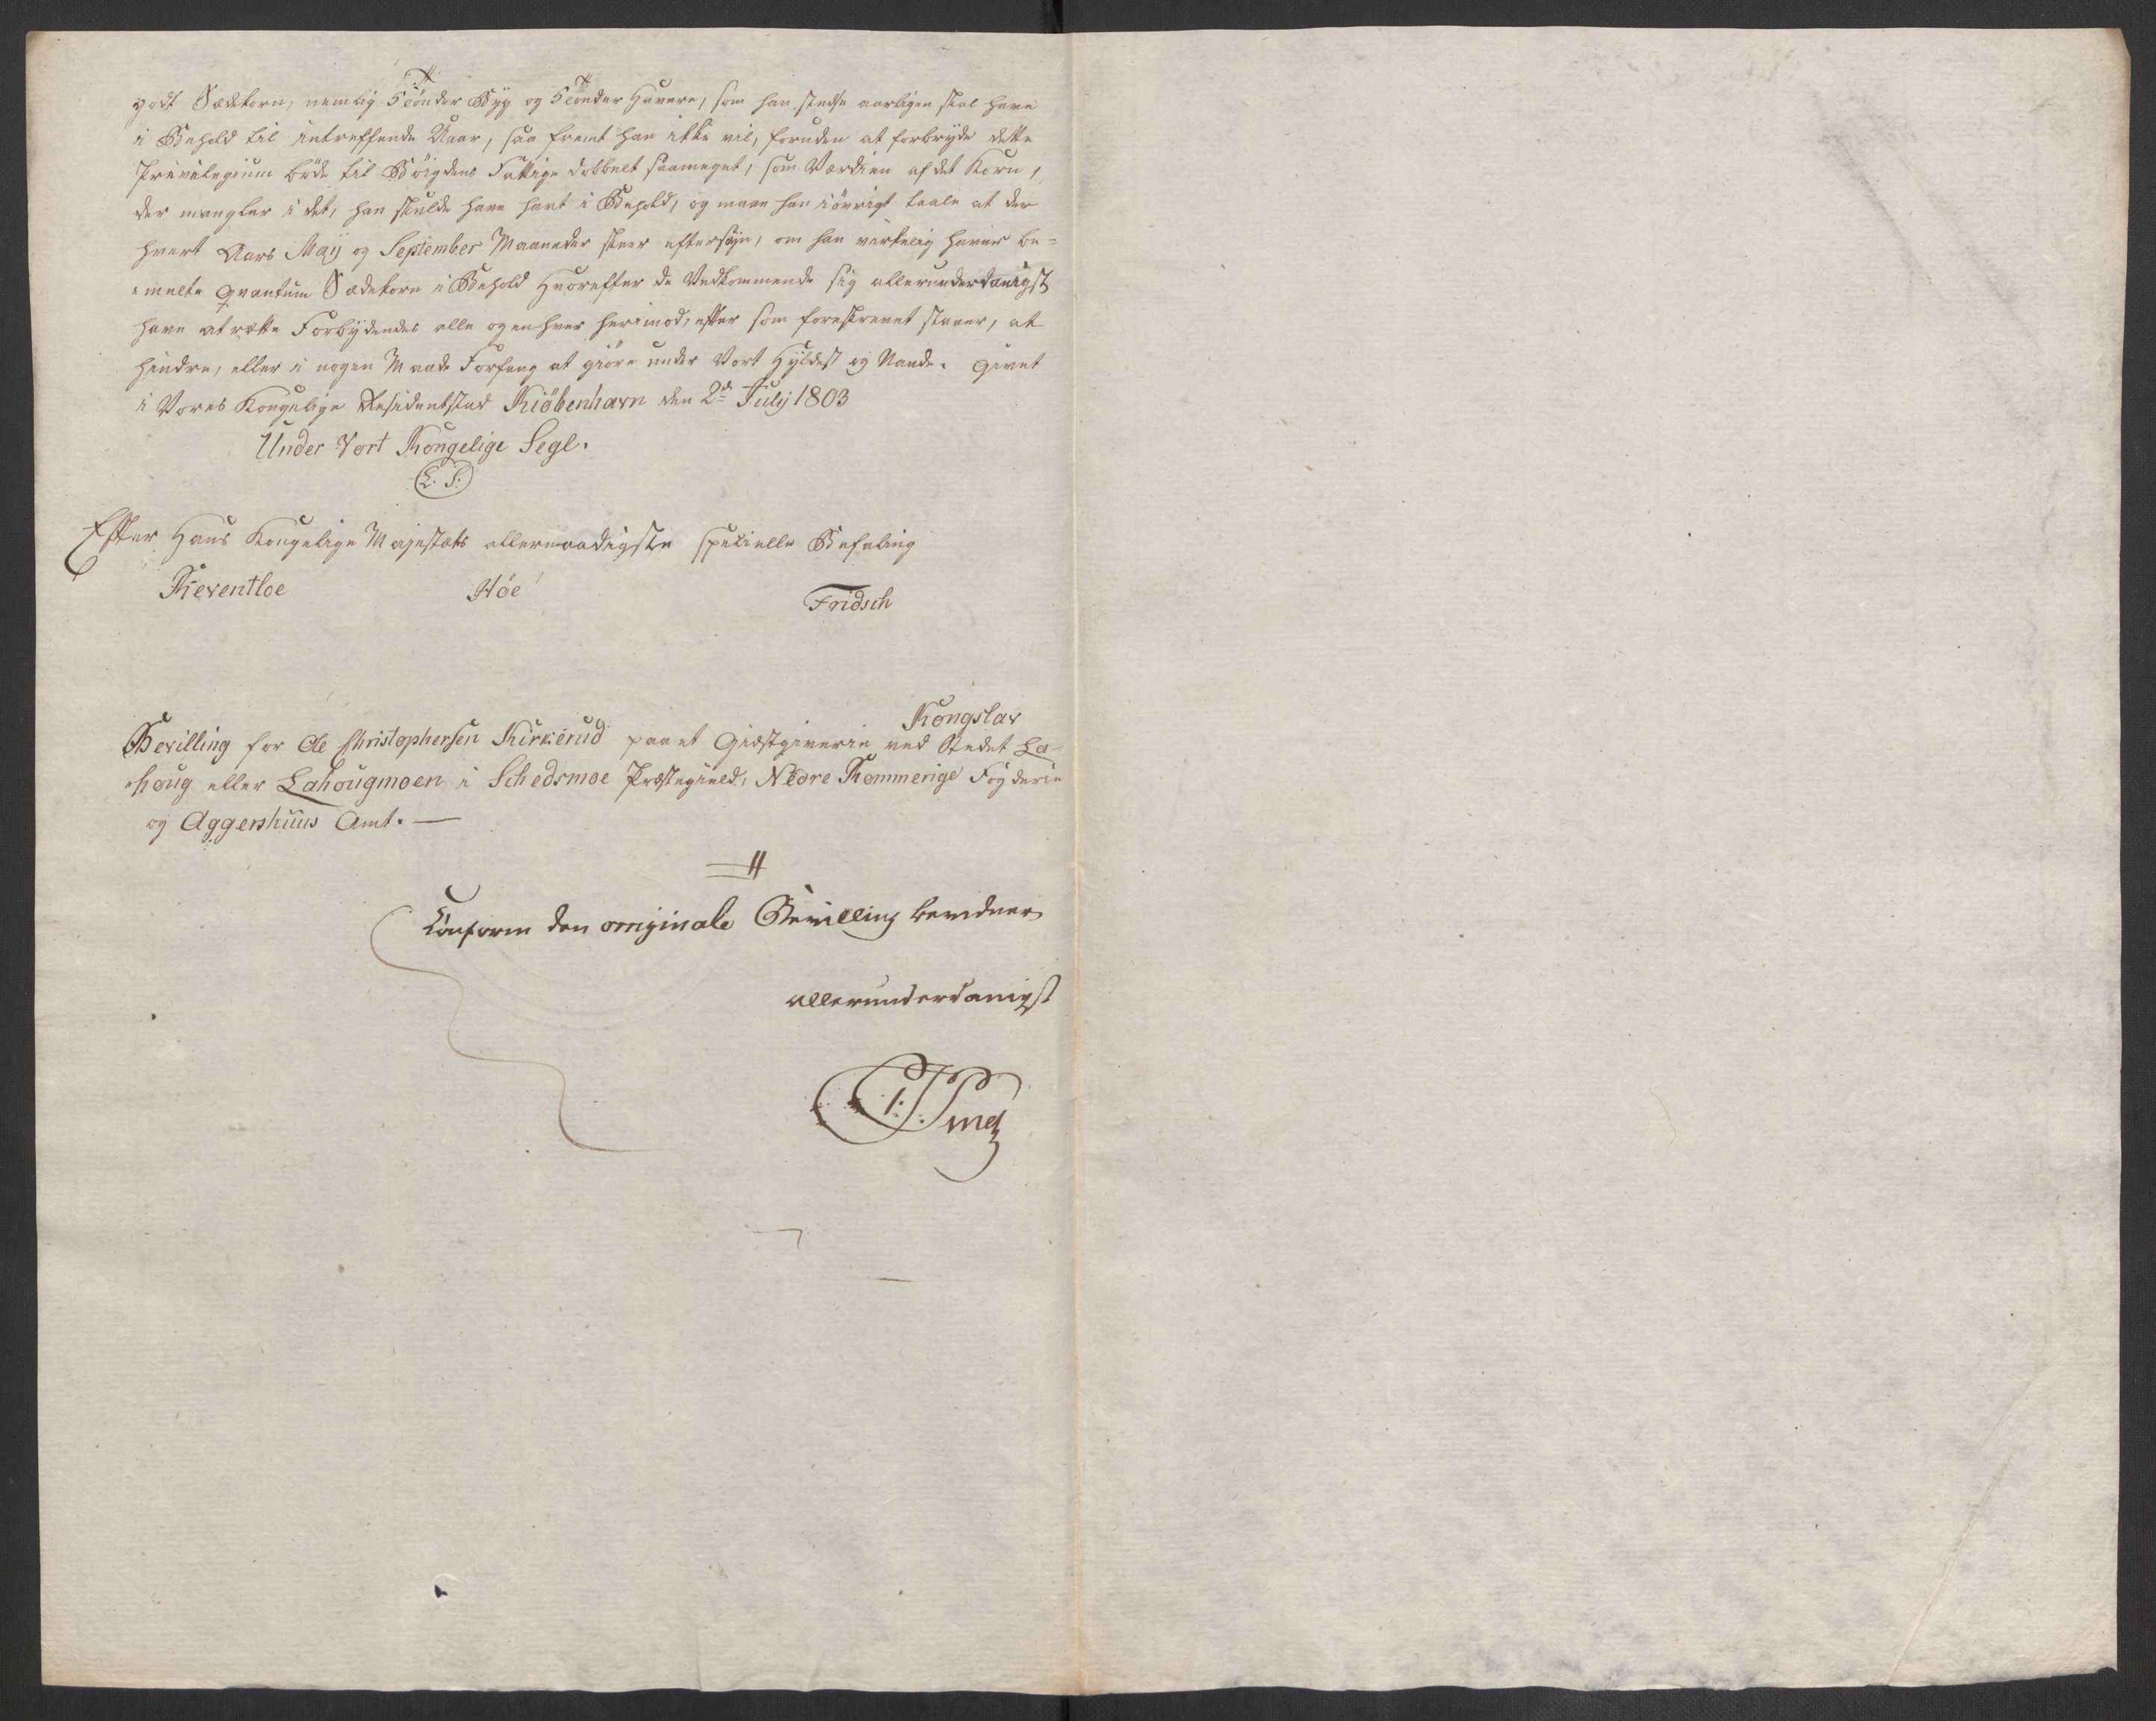 godt Sædekorn, nemlig 5 Tönder Byg og 5 Tönder Havere, som han stedse aarligen skal have
i Behold til intreffende Uaar, saa fremt han ikke vil, foruden at forbryde dette
Privilegium böde til Böigdens Fattige dobbelt saameget, som Værdien af det Korn,
der mangler i det, han skulde have havt i Behold, og maae han iövrigt taale at der
hvert Aars Maÿ og September Maaneder skeer eftersÿn, om han virkelig haver be=
=melte Qvantum Sædekorn i Behold Hvorefter de Vedkommende sig allerunderdanigst
have at rætte Forbÿdendes alle og enhver herimod, efter som foreskrevet staaer, at
hindre, eller i nogen Maade Forfang at giöre under Vort Hÿldest og Naade. Givet
i Vores Kongelige Residentstad Kiöbenhavn den 2de Julÿ 1803
Under Vort Kongelige Segl.
L. S.
Efter Hans Kongelige Majestæts allernaadigste specielle Befaling
Reventloe Höe Fridsch
Kongslar
Bevilling for Ole Christophersen Kirkerud paa et Giæstgiverie ved Stedet La=
=houg eller Lahougmoen i Schedsmoe Præstegield, Nedre Rommerige Fögderie
og Aggershuus Amt. —
Conform den originale Bevilling bevidner
allerunderdanigst